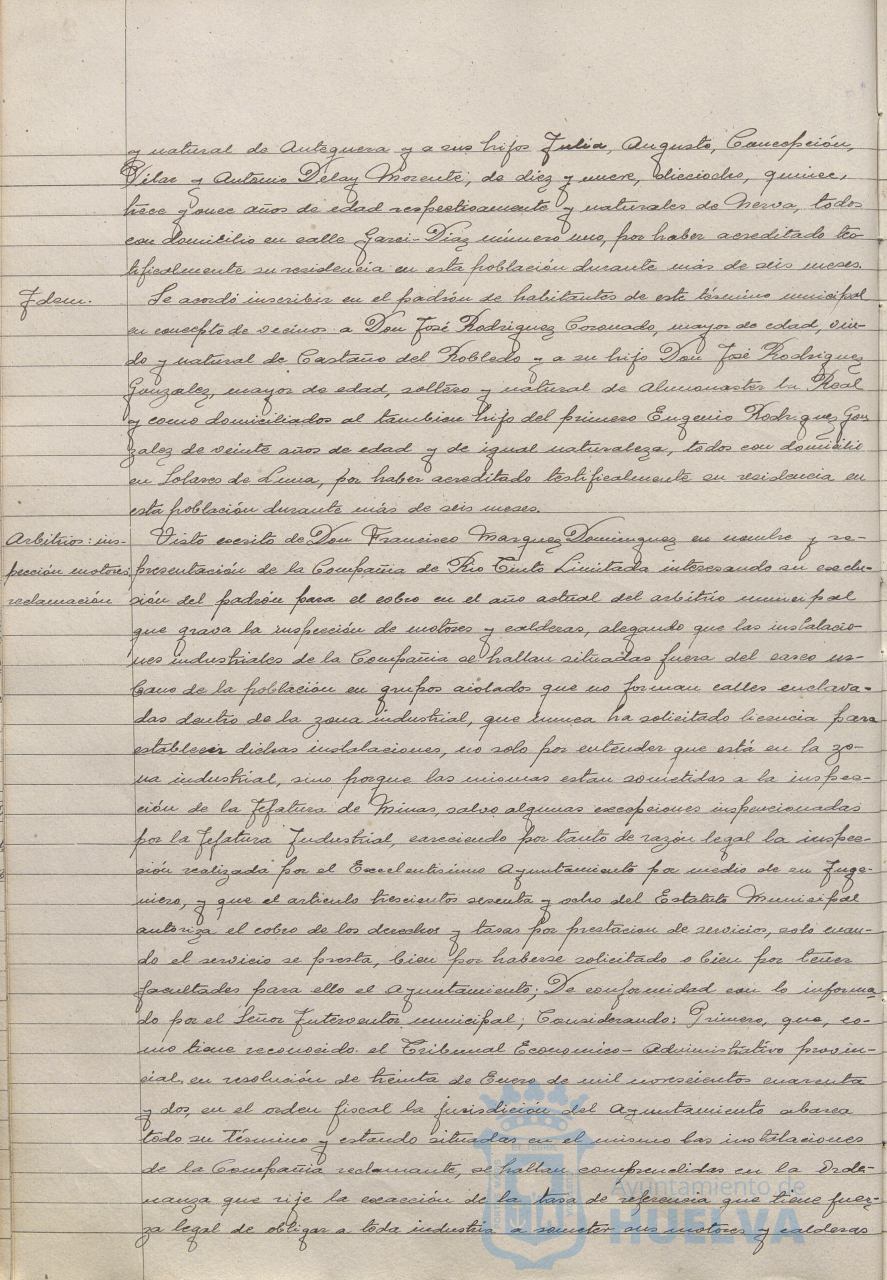 y natural de Antequera y a sus hijos Julia, Augusto, Concepción,
Pilar y Antonio Delay Morente, de diez y nueve, dieciocho, quince,
trece y once años de edad respectivamente y naturales de Nerva, todos
con domicilio en calle Garci-Diaz número uno, por haber acreditado tes-
tificalmente su residencia en esta población durante más de seis meses.
Idem.
Se acordó inscribir en el padrón de habitantes de este término municipal
en concepto de vecinos a Don José Rodriguez Coronado, mayor de edad, viu-
do y natural de Castaño del Robledo y a su hijo Don José Rodriguez
Gonzalez, mayor de edad, soltero y natural de Almonaster la Real
y como domiciliados al tambien hijo del primero Eugenio Rodriguez Gon
zalez de veinte años de edad y de igual naturaleza, todos con domicilio
en Solares de Luna, por haber acreditado testificalmente su residencia en
esta población durante más de seis meses.
Arbitrios: ins-
pección motores,
reclamación
Visto escrito de Don Francisco Marquez Dominguez en nombre y re-
presentación de la Compañia de Rio Tinto Limitada interesando su exclu-
sión del padrón para el cobro en el año actual del arbitrio municipal
que grava la inspección de motores y calderas, alegando que las instalacio-
nes industriales de la Compañia se hallan situadas fuera del casco ur-
bano de la población en grupos aislados que no forman calles enclava-
das dentro de la zona industrial, que nunca ha solicitado licencia para
establecer dichas instalaciones, no solo por entender que está en la zo-
na industrial, sino porque las mismas estan sometidas a la inspec-
ción de la Jefatura de Minas, salvo algunas excepciones inspencionadas
por la Jefatura Industrial, careciendo por tanto de razón legal la inspec-
ción realizada por el Excelentisimo Ayuntamiento por medio de su Inge-
niero, y que el articulo trescientos sesenta y ocho del Estatuto Municipal
autoriza el cobro de los derechos y tasas por prestacion de servicios, solo cuan-
do el servicio se presta, bien por haberse solicitado o bien por tener
facultades para ello el Ayuntamiento; De conformidad con lo informa-
do por el Señor Interventor municipal; Considerando: Primero, que, co-
mo tiene reconocido el Tribunal Economico-Administrativo provin-
cial, en resolución de treinta de Enero de mil novescientos cuarenta
y dos, en el orden fiscal la jurisdición del Ayuntamiento abarca
todo su término y estando situadas en el mismo las instalaciones
de la Compañia reclamante, se hallan comprendidas en la Orde-
nanza que rije la exacción de la tasa de referencia que tiene fuer-
za legal de obligar a toda industria a someter sus motores y calderas
Ayuntamiento de
HUELVA